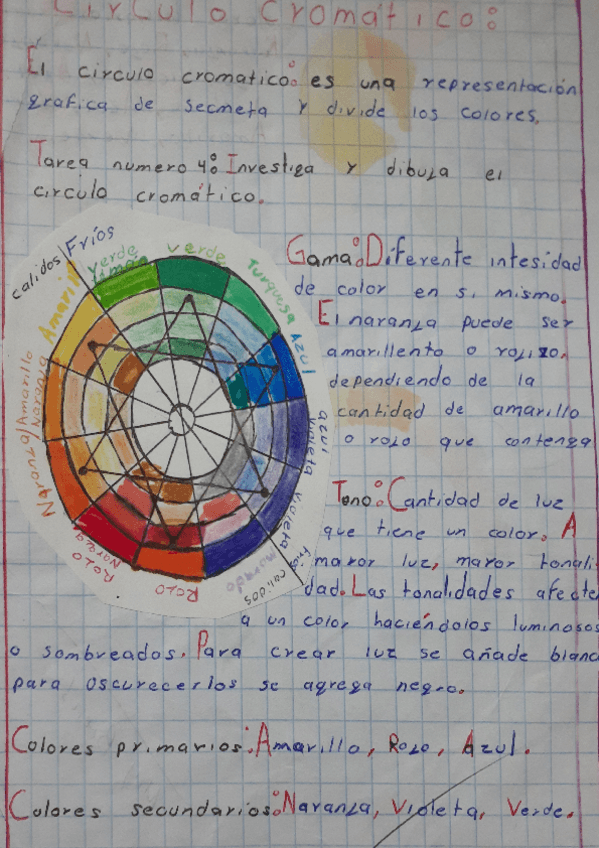 Círculo Cromático:
El circulo cromatico: es una representación
grafica de secmeta y divide los colores.
Tarea numero 4: Investiga y dibuja el
circulo cromático.
Fríos
calidos
verde limón
verde
Turquesa
Azul
azul violeta
violeta
morado
Frios
calidos
Rojo
Rojo Naranja
Naranja
Amarillo
Gama: Diferente intesidad
de color en si mismo.
El naranza puede ser
amarillento o rojizo.
dependiendo de la
cantidad de amarillo
o rojo que contenga
Tono: Cantidad de luz
que tiene un color. A
mayor luz, mayor tonali
dad. Las tonalidades afecte
a un color haciéndolos luminosos
o sombreados. Para crear luz se añade blanc
para oscurecerlos se agrega negro.
Colores primarios: Amarillo, Rojo, Azul.
Colores secundarios: Naranja, Violeta, Verde.